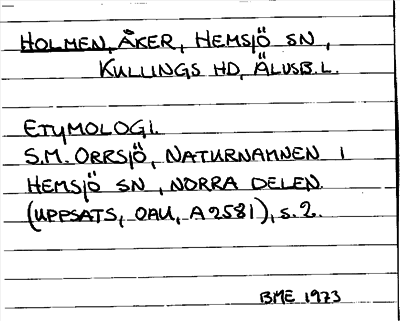 HOLMEN, ÅKER, HEMSJÖ SN,
KULLINGS HD, ÄLVSB.L.
ETYMOLOGI.
S.M. ORRSJÖ, NATURNAMNEN I
HEMSJÖ SN, NORRA DELEN.
(UPPSATS, OAU, A 2581), S. 2.
BME 1973